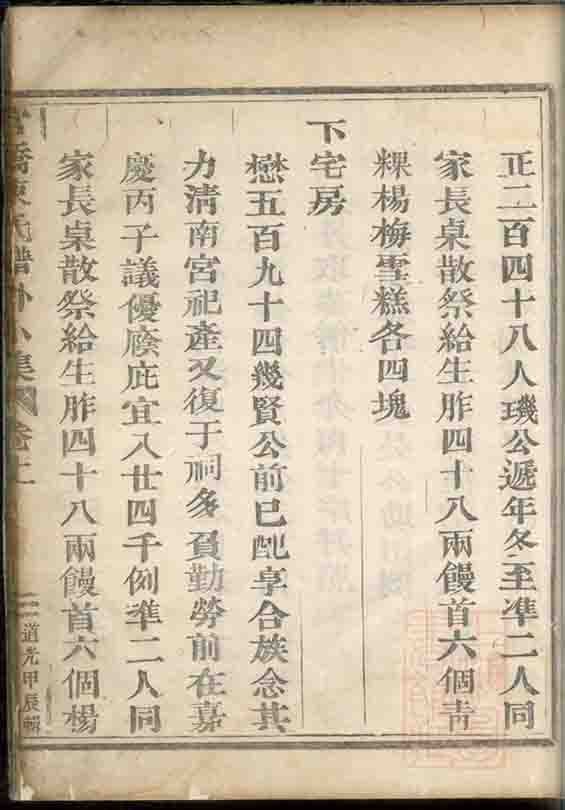 正二百四十八人璣公遞年冬至準二人同
家長桌散祭給生胙四十八兩饅首六個青
粿楊梅雪糕各四塊
下宅房
懋五百九十四幾賢公前已配享合族念其
力清南宮祀產又復于祠多負勤勞前在嘉
慶丙子議優廕庇宜入廿四千例準二人同
家長桌散祭給生胙四十八兩饅首六個楊
橋東氏譜外小集卷上
二
道光甲辰輯